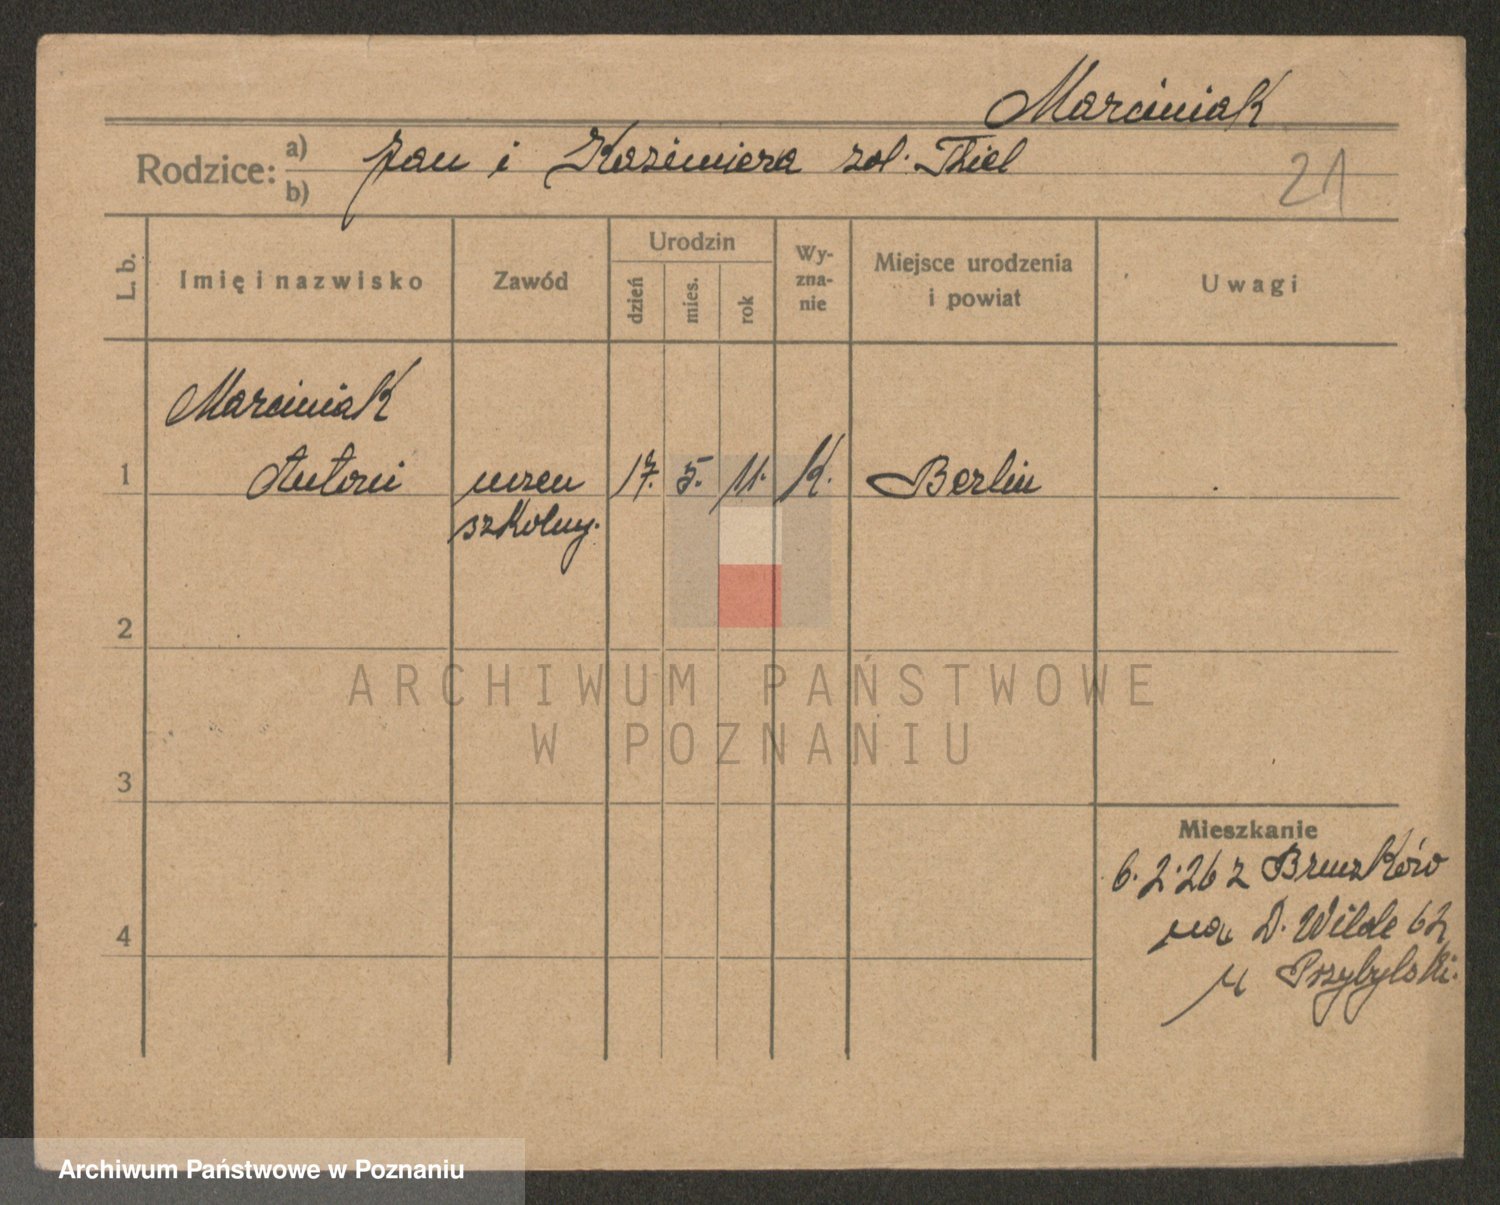 Marciniak
Rodzice: a) Jan i Kazimiera zol. Thiel
b)
21
L. b. Imię i nazwisko Zawód Urodzin dzień mies. rok Wy-zna-nie Miejsce urodzenia i powiat Uwagi
Marciniak
1 Antoni uczeń 17. 5. 11. K. Berlin
szkolny.
2
3
4
Mieszkanie
6.2.26 z
na D. Wilde 62
u Przybylski.
ARCHIWUM PAŃSTWOWE
W POZNANIU
Archiwum Państwowe w Poznaniu